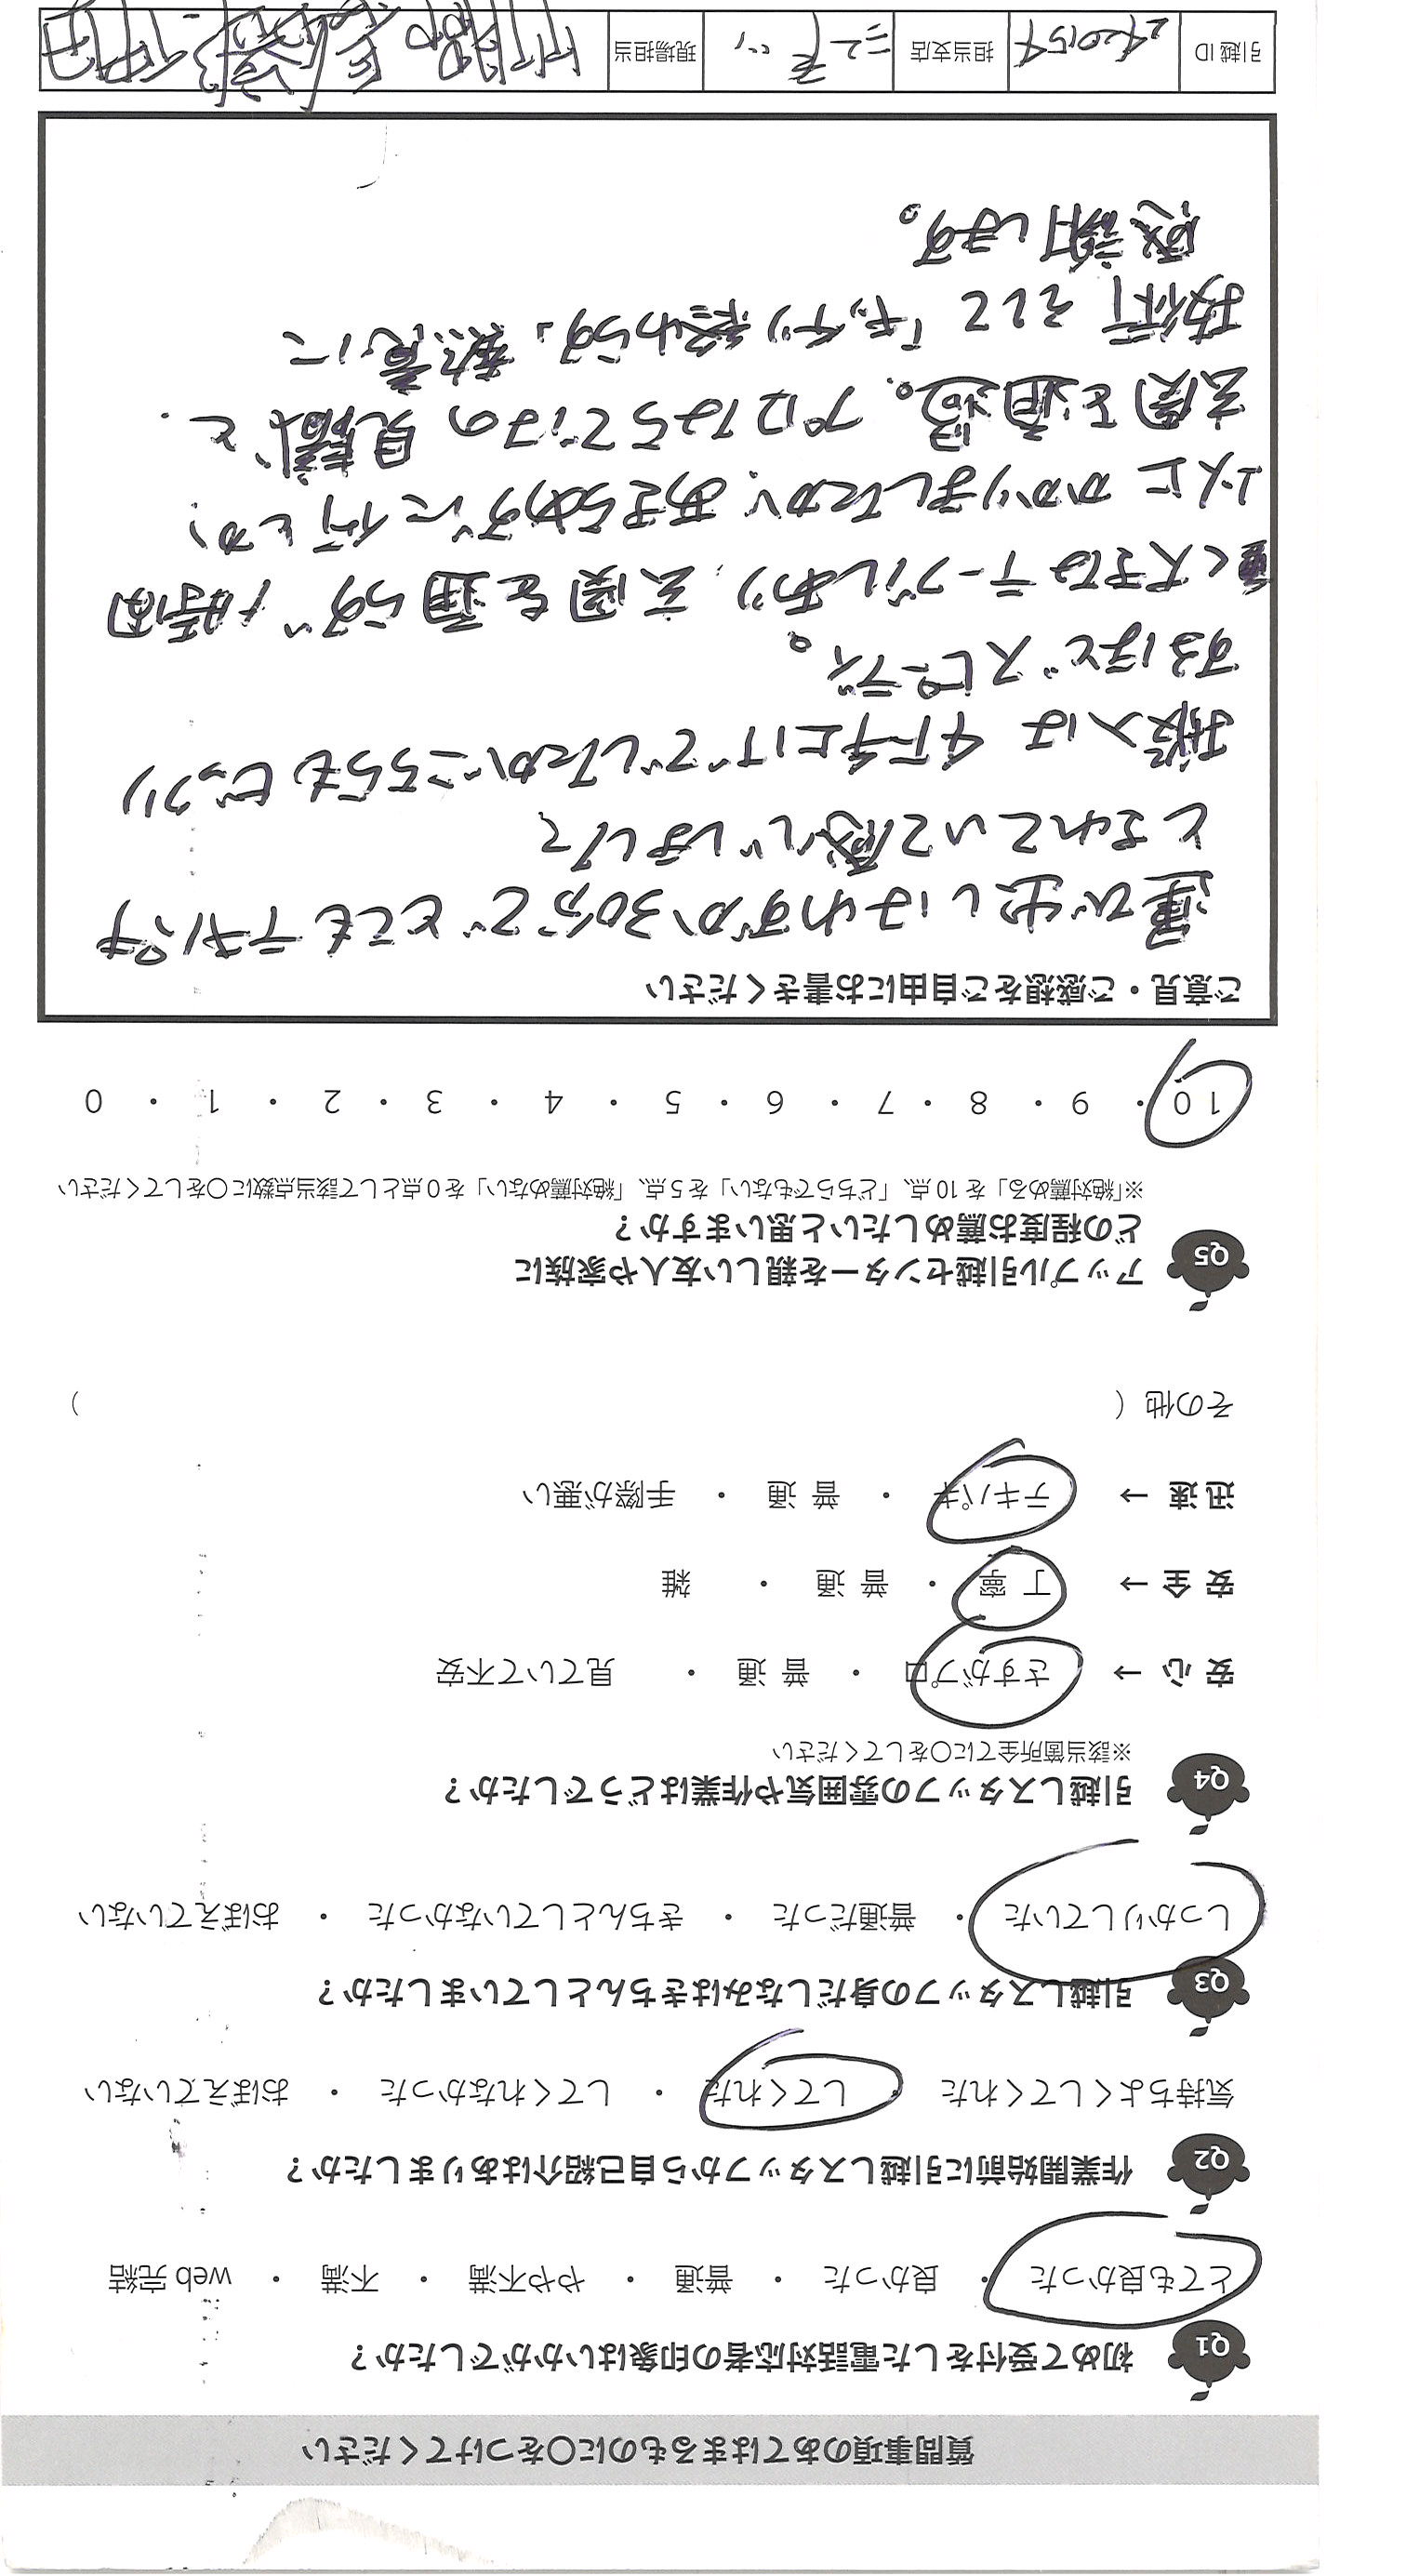 質問事項のあてはまるものに〇をつけてください
Q1 初めて受付をした電話対応者の印象はいかがでしたか？
とても良かった ・ 良かった ・ 普通 ・ やや不満 ・ 不満 ・ web 完結
Q2 作業開始前に引越しスタッフから自己紹介はありましたか？
気持ちよくしてくれた ・ してくれた ・ してくれなかった ・ おぼえていない
Q3 引越しスタッフの身だしなみはきちんとしていましたか？
しっかりしていた ・ 普通だった ・ きちんとしていなかった ・ おぼえていない
Q4 引越しスタッフの雰囲気や作業はどうでしたか？
※該当箇所全てに〇をしてください
安 心 → さすがプロ ・ 普 通 ・ 見ていて不安
安 全 → 丁 寧 ・ 普 通 ・ 雑
迅 速 → テキパキ ・ 普 通 ・ 手際が悪い
その他（ ）
Q5 アップル引越センターを親しい友人や家族に
どの程度お薦めしたいと思いますか？
※「絶対薦める」を 10 点、「どちらでもない」を 5 点、「絶対薦めない」を 0 点として該当点数に〇をしてください
10 ・ 9 ・ 8 ・ 7 ・ 6 ・ 5 ・ 4 ・ 3 ・ 2 ・ 1 ・ 0
ご意見・ご感想をご自由にお書きください
運び出しはわずか30分でとてもテキパキ
とされていて感心しまして
搬入は 4F手上げでしたがこちらもビックリ
するほどスピーディ。
重く大きなテーブルあり、玄関を通らず 1時間
以上かかりましたが、あきらめずに何とか
玄関を通過。プロならではの見識と
技術 そして「キッチリ終わらす」熱意に
感謝します。
引越 ID 2420154 担当支店 現場担当